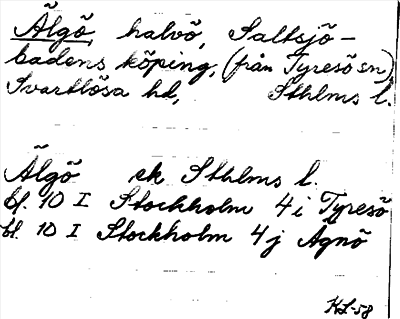 Älgö, halvö, Saltsjö-
badens köping, (från Tyresö sn)
Svartlösa hd, Sthlms l.
Älgö ek Sthlms l.
bl. 10 I Stockholm 4 i Tyresö
bl. 10 I Stockholm 4 j Ägnö
KL-58